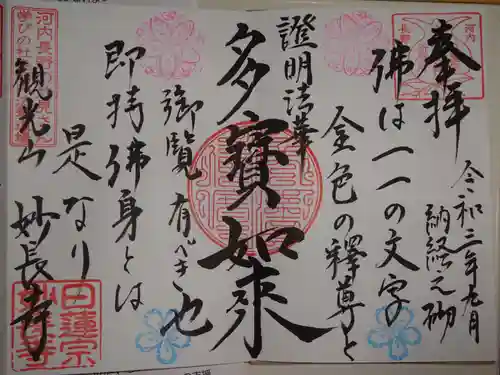 奉拝
令和三年九月
納経之砌
佛は一一の文字の
金色の釋尊と
證明法華
多寶如来
御覧有べき也
即持佛身とは
是なり
観光山 妙長寺
河内長野
学びの社
日蓮宗
妙長寺
河内
長野